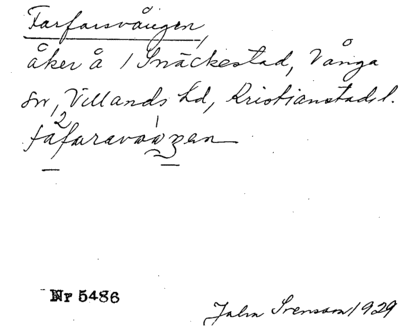 Farfarsvången,
åker å 1 Snäckestad, Vånga
sn, Villands hd, Kristianstads l.
Nr 5486
John Svensson 1929